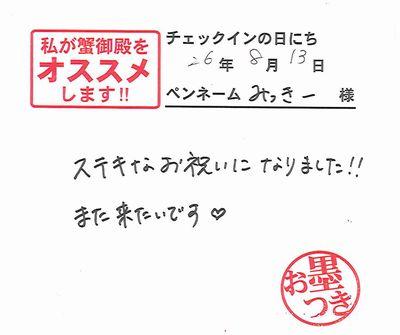 私が蟹御殿を
オススメ
します!!
チェックインの日にち
26年 8月 13日
ペンネーム みっきー 様
ステキなお祝いになりました!!
また来たいです♡
お墨つき